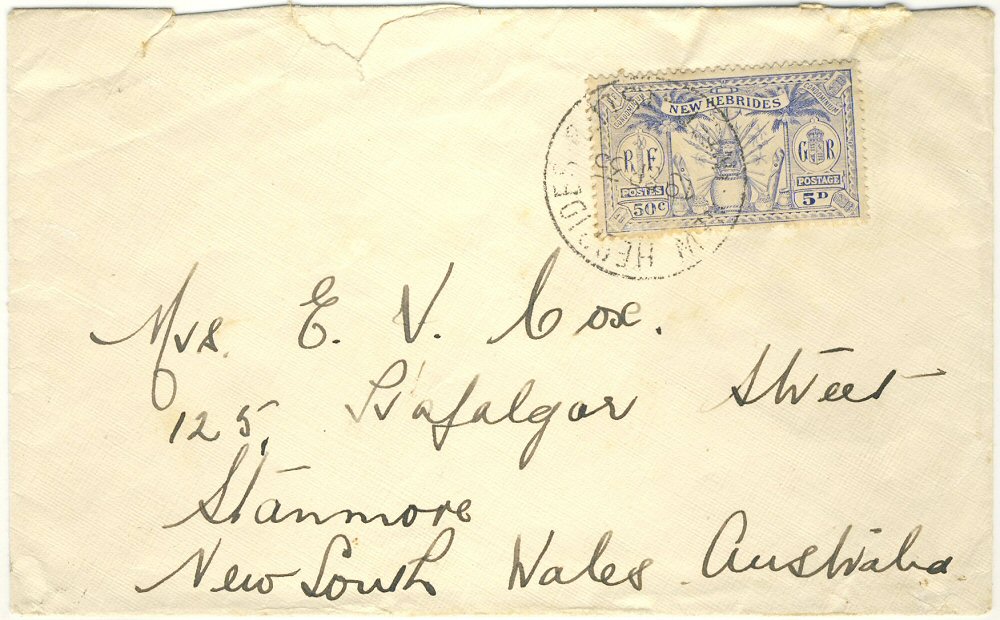 NEW HEBRIDES
CONDOMINIUM
R F
G R
POSTES
POSTAGE
50c
5D
Mrs. E. V. Cox.
125, Trafalgar Street
Stanmore
New South Wales Australia